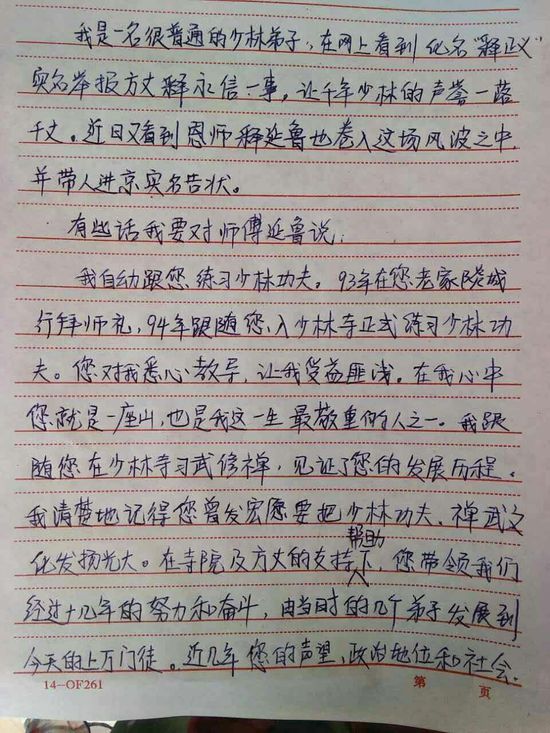 我是一名很普通的少林弟子，在网上看到化名“释正义”
实名举报方丈释永信一事，让千年少林的声誉一落
千丈。近日又看到恩师释延鲁也卷入这场风波之中，
并带人进京实名告状。
有些话我要对师傅延鲁说：
我自幼跟您练习少林功夫。93年在您老家郯城
行拜师礼，94年跟随您入少林寺正式练习少林功
夫。您对我悉心教导，让我受益匪浅。在我心中
您就是一座山，也是我这一生最敬重的人之一。我跟
随您在少林寺习武修禅，见证了您的发展历程。
我清楚地记得您曾发宏愿要把少林功夫、禅武文
化发扬光大。在寺院及方丈的支持帮助下，您带领我们
经过十几年的努力和奋斗，由当时的几个弟子发展到
今天的上万门徒。近几年您的声望，政治地位和社会
14-OF261 第 页